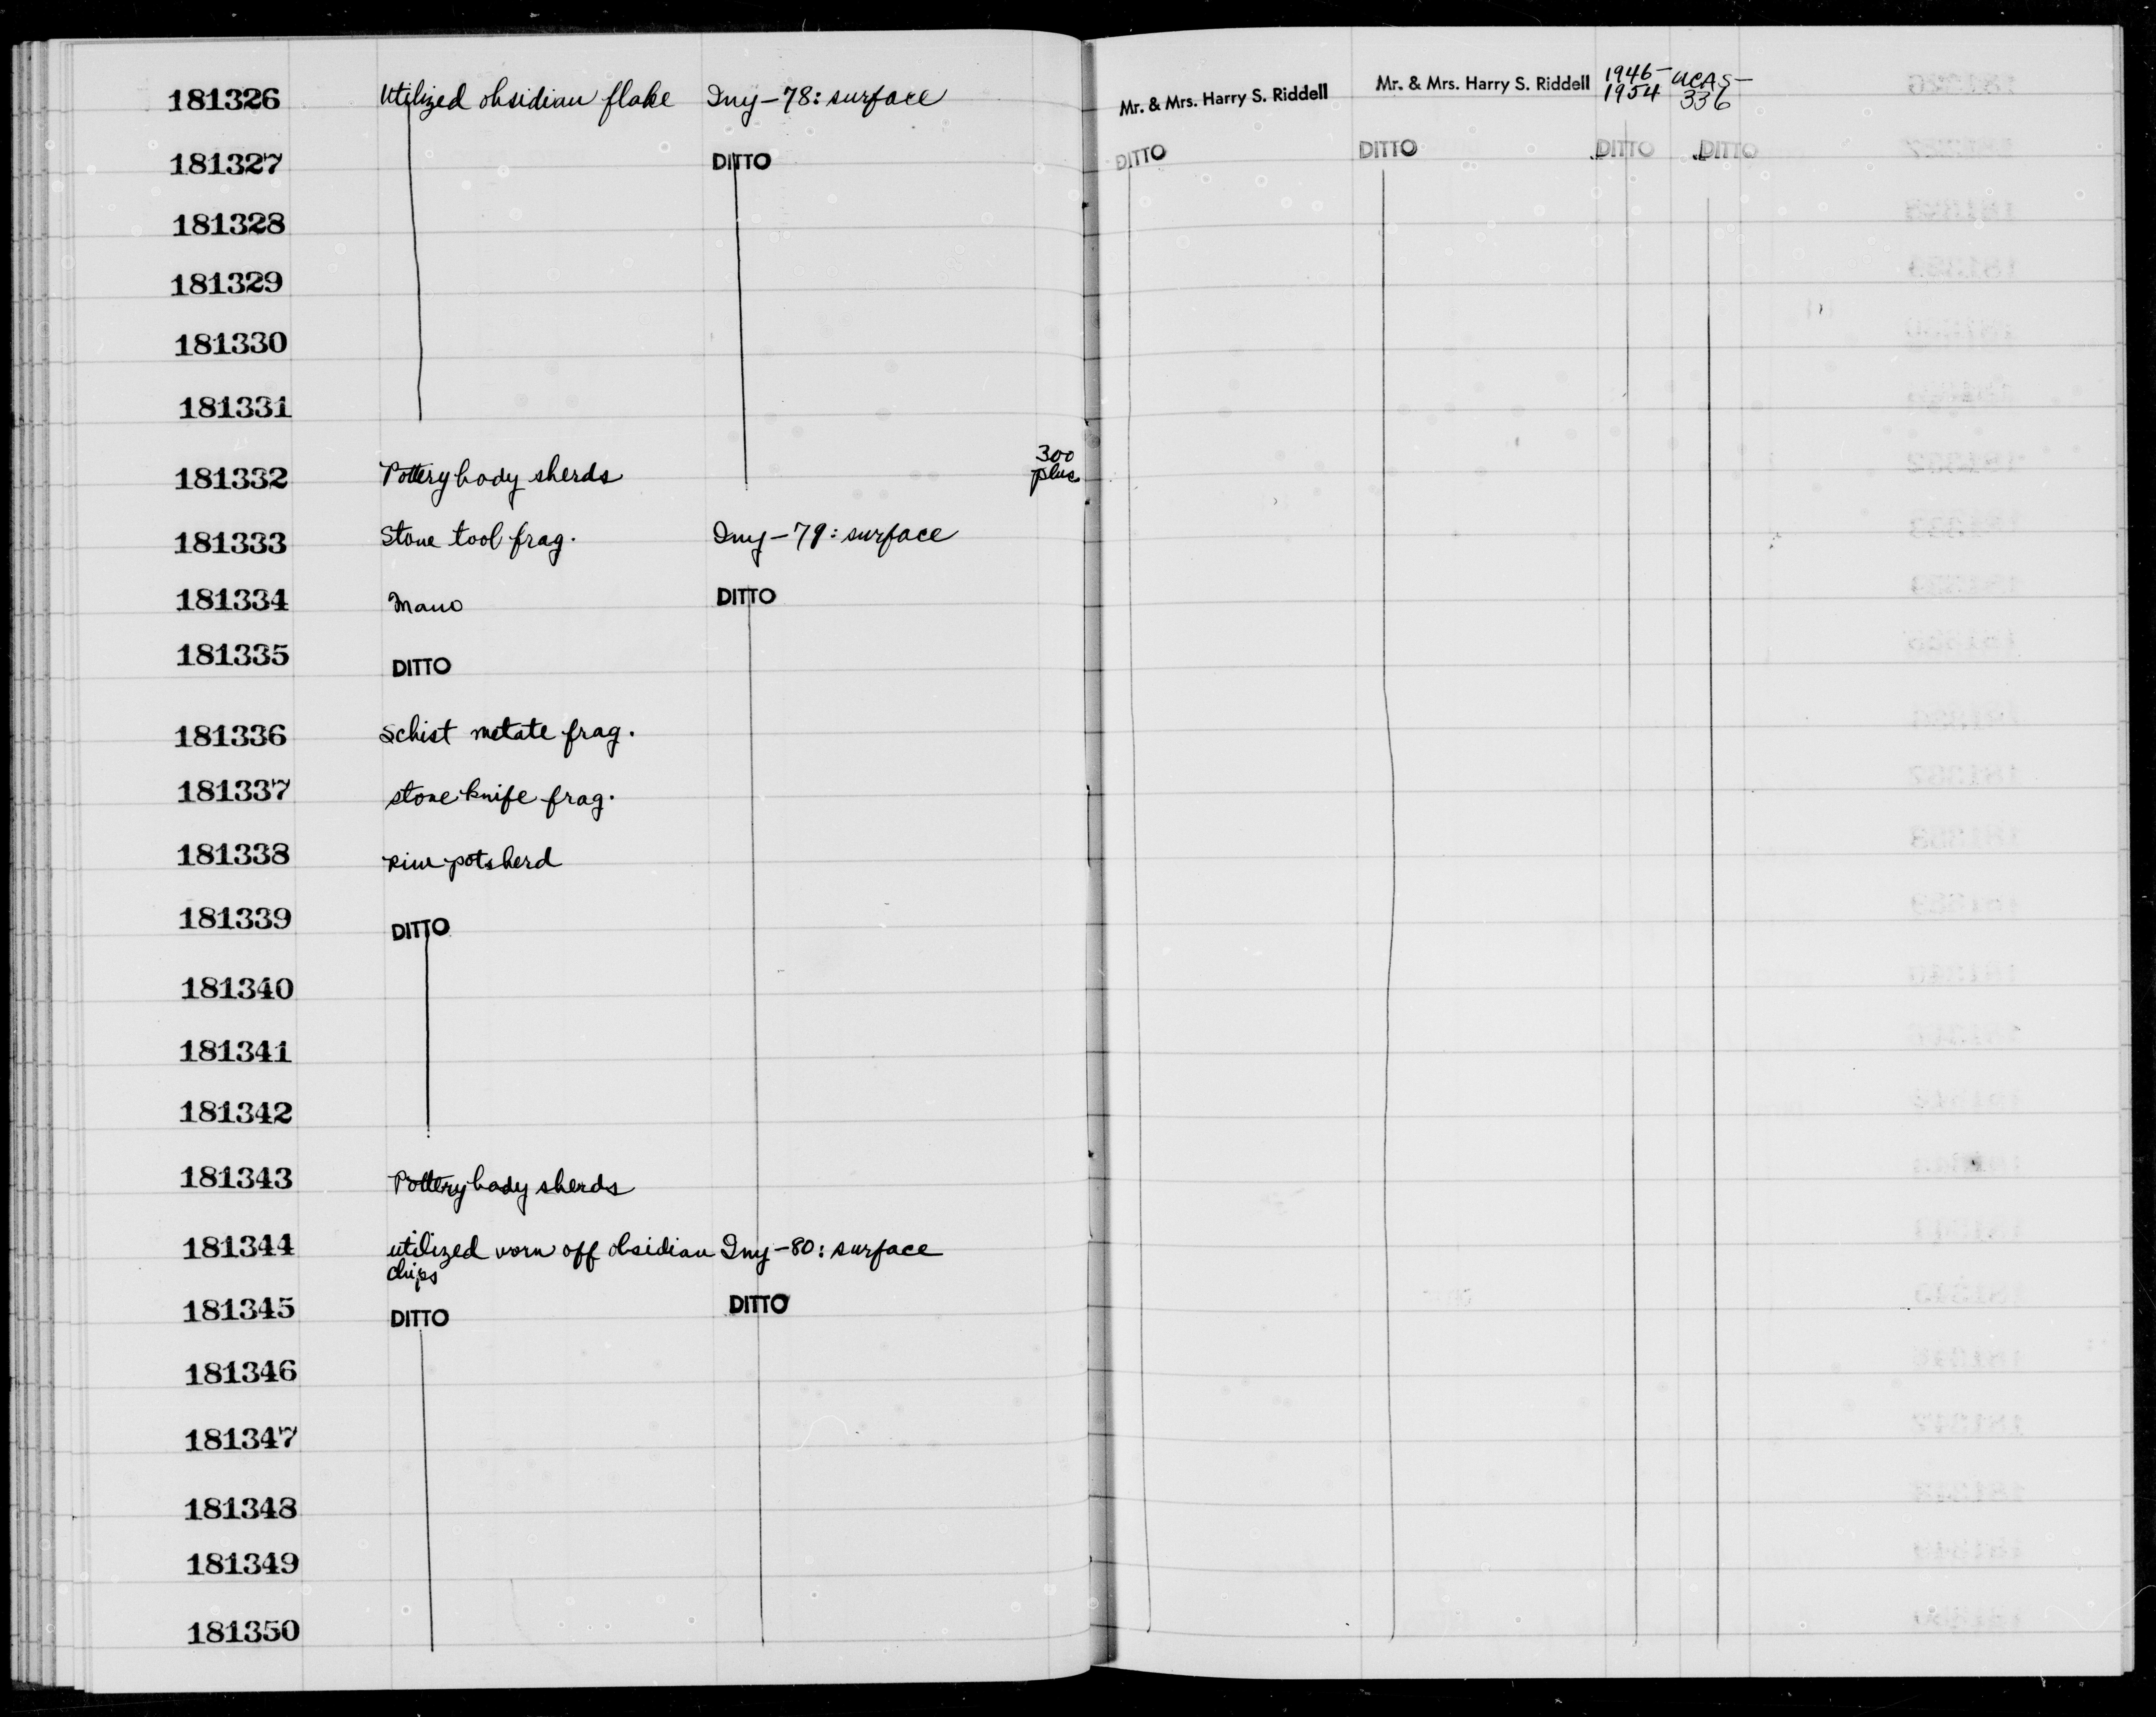 181326 Utilized obsidian flake Iny-78: surface Mr. & Mrs. Harry S. Riddell Mr. & Mrs. Harry S. Riddell 1946-1954 UCAS-336
181327 DITTO DITTO DITTO DITTO DITTO
181328
181329
181330
181331
181332 Pottery body sherds 300 plus
181333 Stone tool frag. Iny-79: surface
181334 Mano DITTO
181335 DITTO
181336 Schist metate frag.
181337 stone knife frag.
181338 rim potsherd
181339 DITTO
181340
181341
181342
181343 Pottery body sherds
181344 utilized worn off obsidian Iny-80: surface
chips
181345 DITTO DITTO
181346
181347
181348
181349
181350